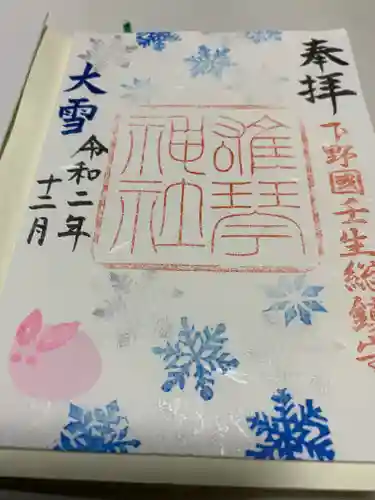 奉拝
下野國壬生総鎮守
雄琴
神社
大雪
令和二年
十二月